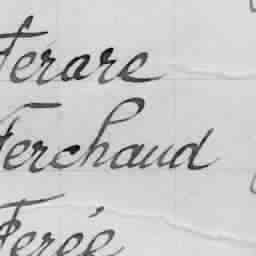 Ferare
Ferchaud
Ferée